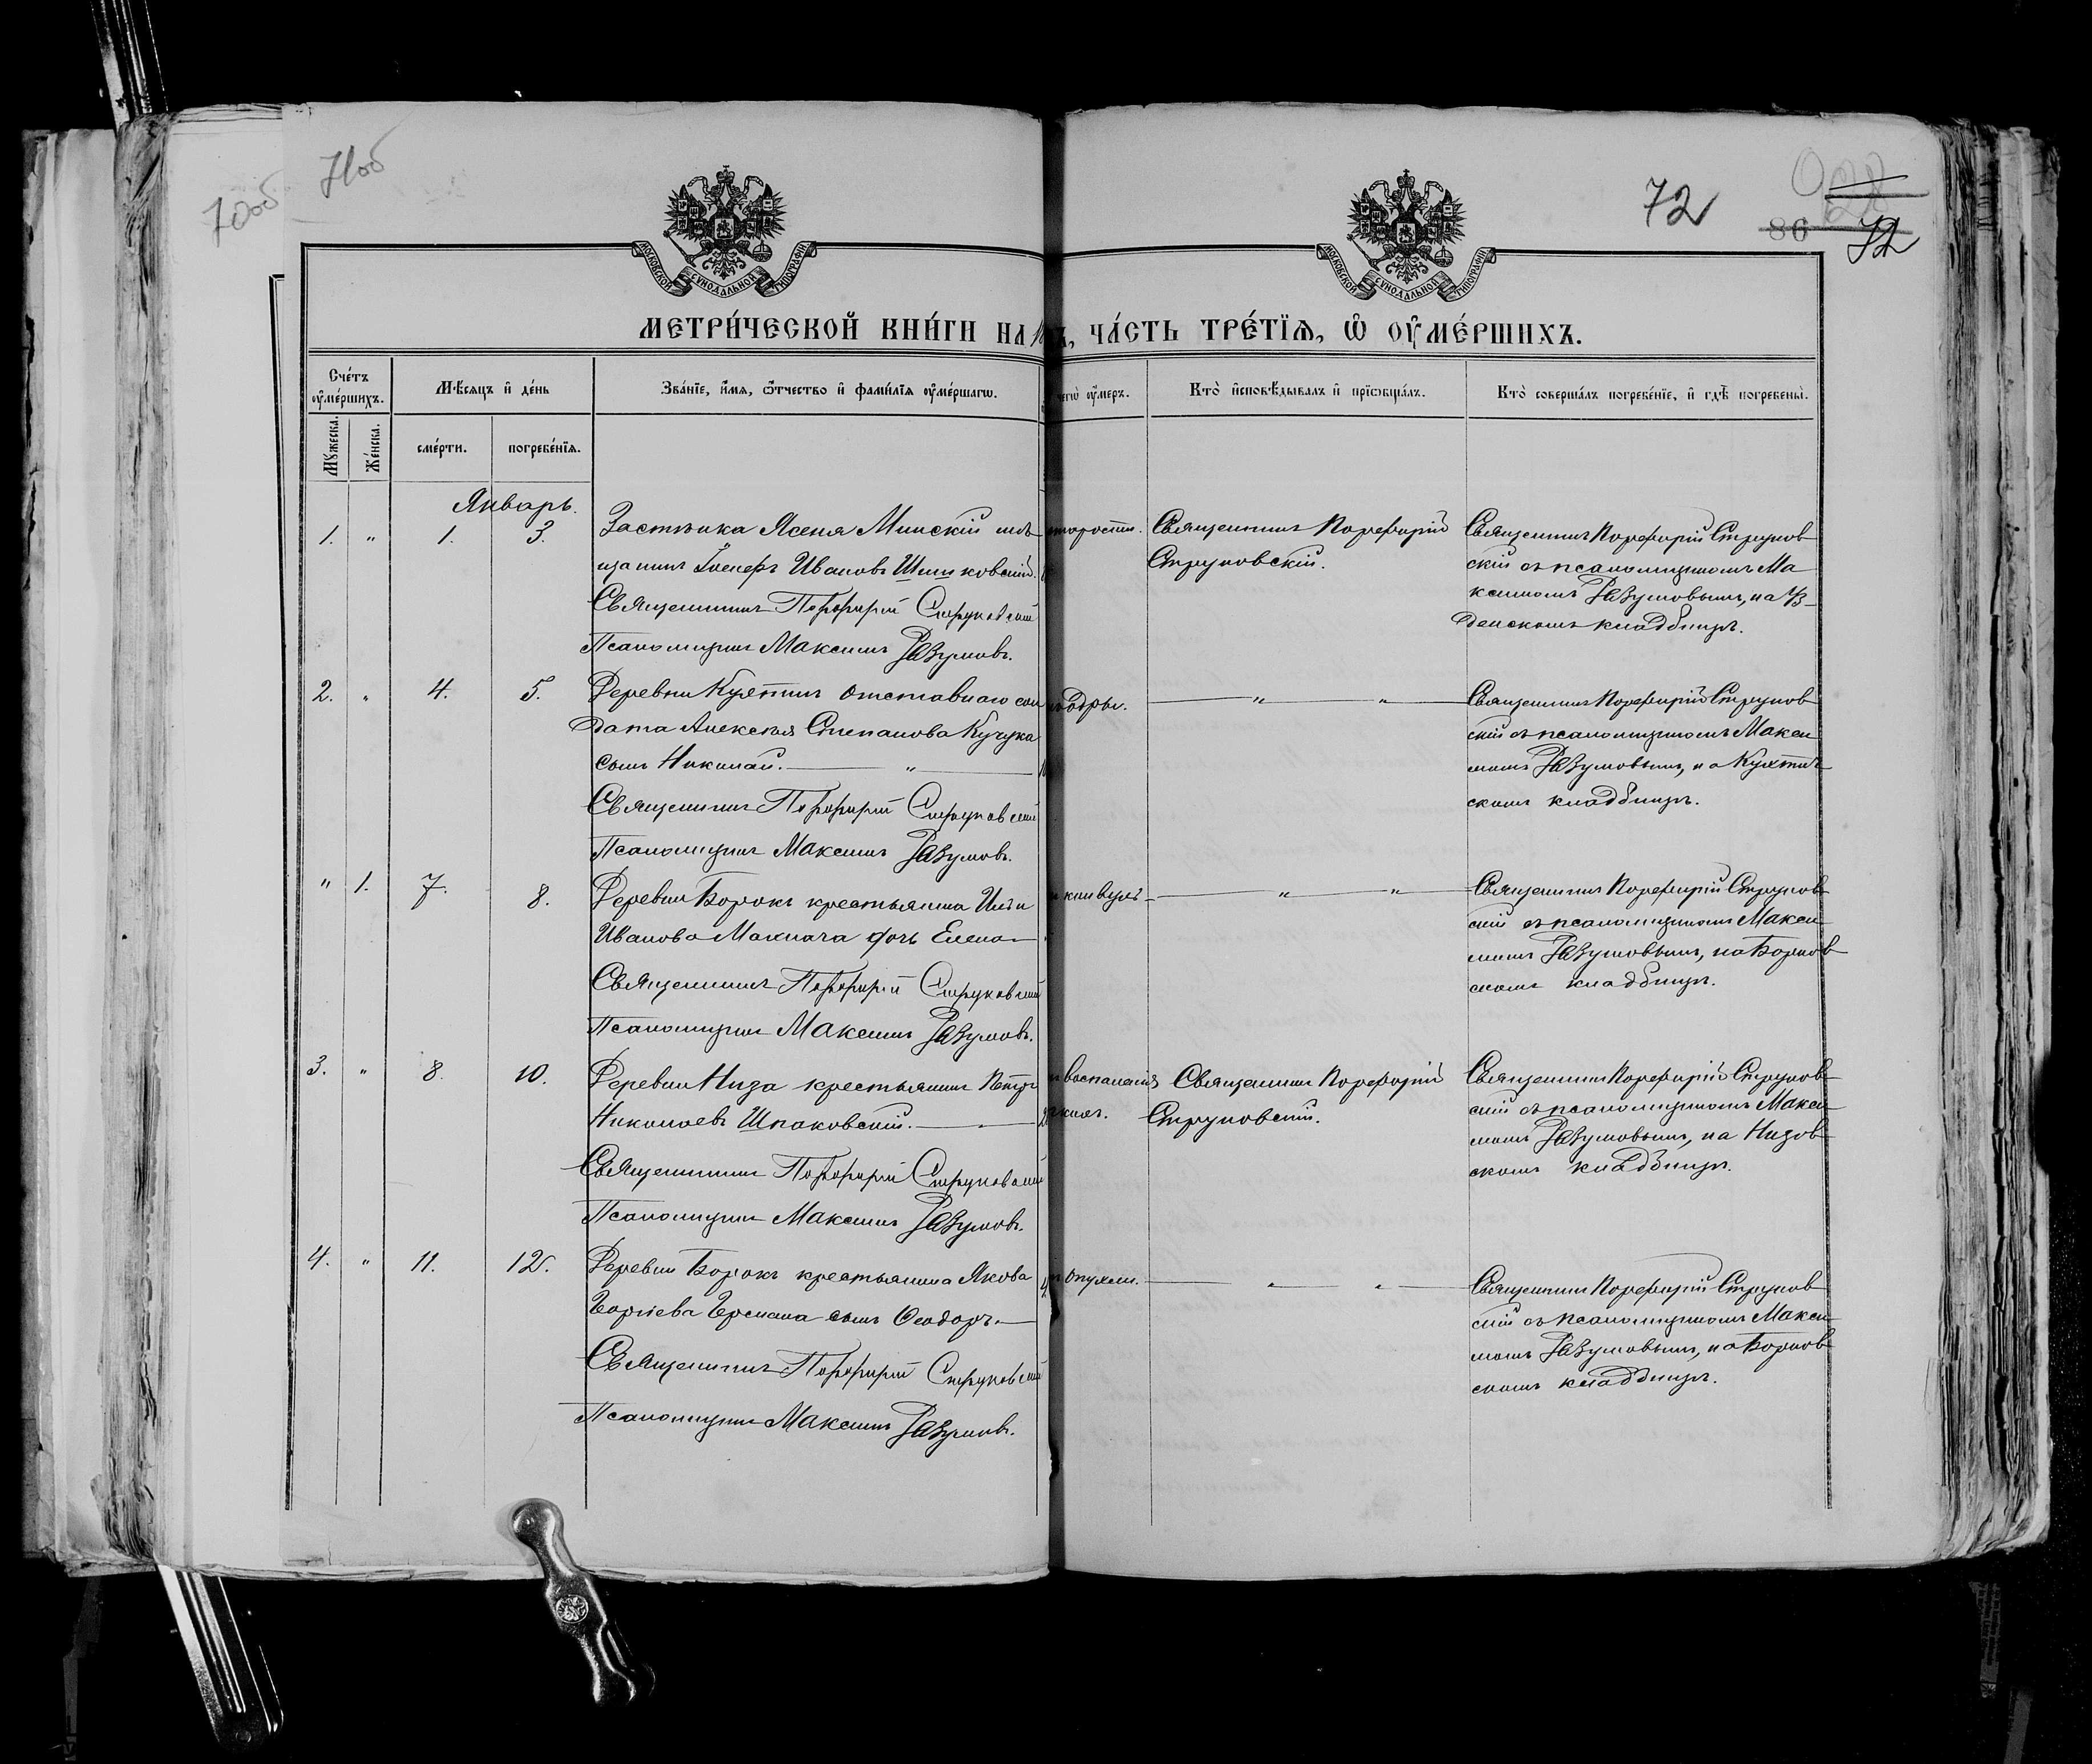 70об
71об
72
86
72
МОСКОВСКОЙ СѴНОДАЛЬНОЙ ТИПОГРАФІИ
МОСКОВСКОЙ СѴНОДАЛЬНОЙ ТИПОГРАФІИ
МЕТРИ́ЧЕСКОЙ КНИ́ГИ НА ЧА́СТЬ ТРЕ́ТІѦ, Ѡ ОУМЕ́РШИХЪ.
Сче́тъ оуме́ршихъ.
Мѣсѧцъ и де́нь
Зва́ніе, имѧ, ѻтчество и фами́лїѧ оуме́ршагѡ.
чегѡ оумеръ.
Кто̀ исповѣ́дывалъ и прїѻбща́лъ.
Кто̀ соверша́лъ погребе́нїе, и гдѣ погребены̀.
Мꙋжеска.
Же́нска.
сме́рти.
погребе́нїѧ.
Январь.
1. " 1. 3.
Застѣнка Ясеня Минскій мѣ
щанинъ Іосифъ Ивановъ Шишковскій.
Священникъ Порфирій Струковскій
Псаломщикъ Максимъ Разумовъ.
старости.
Священникъ Порфирій
Струковскій.
Священникъ Порфирій Струков
скій съ псаломщикомъ Ма
ксимомъ Разумовымъ, на Уз
денскомъ кладбищѣ.
2. " 4. 5.
Деревни Кухтичъ отставнаго сол
дата Алексѣя Степанова Кучука
сынъ Николай. "
Священникъ Порфирій Струковскій
Псаломщикъ Максимъ Разумовъ.
" "
Священникъ Порфирій Струков
скій съ псаломщикомъ Макси
момъ Разумовымъ, на Кухтич
скомъ кладбищѣ.
" 1. 7. 8.
Деревни Борокъ крестьянина Ильи
Иванова Макнача дочь Елена
Священникъ Порфирій Струковскій
Псаломщикъ Максимъ Разумовъ.
" "
Священникъ Порфирій Струков
скій съ псаломщикомъ Макси
момъ Разумовымъ, на Борков
скомъ кладбищѣ.
3. " 8. 10.
Деревни Низа крестьянинъ Петръ
Николаевъ Шпаковскій.
Священникъ Порфирій Струковскій
Псаломщикъ Максимъ Разумовъ.
воспаленія
Священникъ Порфирій
Струковскій.
Священникъ Порфирій Струков
скій съ псаломщикомъ Макси
момъ Разумовымъ, на Низов
скомъ кладбищѣ.
4. " 11. 12.
Деревни Борокъ крестьянина Якова
сынъ Ѳеодоръ.
Священникъ Порфирій Струковскій
Псаломщикъ Максимъ Разумовъ.
опухоли.
" "
Священникъ Порфирій Струков
скій съ псаломщикомъ Макси
момъ Разумовымъ, на Борков
скомъ кладбищѣ.